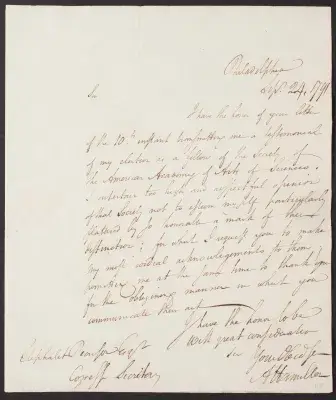 Philadelphia
Sepr. 24, 1791
Sir
I have the honor of your letter
of the 10th instant transmitting me a testimonial
of my election as a fellow of the Society of
the American Academy of Arts & Sciences.
I entertain too high and respectful opinion
of that Society not to esteem myself particularly
flattered by so honorable a mark of their
distinction; for which I request you to make
my most cordial acknowledgements to them;
permitting me at the same time to thank you
for the obliging manner in which you
communicate their act
I have the honor to be
with great consideration
Sir Your Obed Ser
A Hamilton
Eliphalet Pearson Esqr
Corresg Secretary